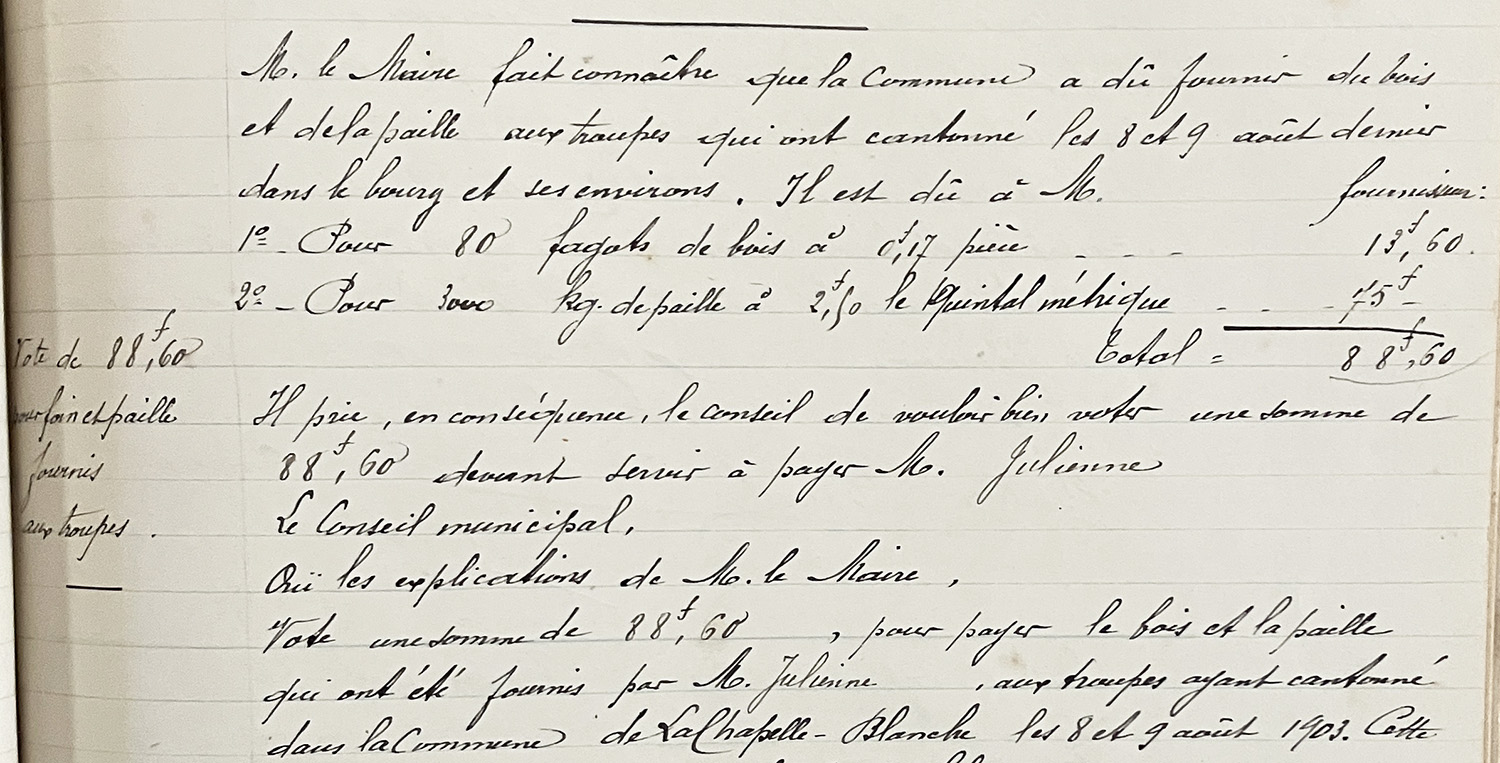 M. le Maire fait connaître que la Commune a dû fournir du bois
et de la paille aux troupes qui ont cantonné les 8 et 9 août dernier
dans le bourg et ses environs. Il est dû à M. fournisseur :
1º - Pour 80 fagots de bois à 0f,17 pièce - - - 13f,60.
2º - Pour 3000 kg. de paille à 2f,50 le Quintal métrique - - - 75f -
Total = 88f,60
Vote de 88f,60
pour foin et paille
fournis
aux troupes.
Il prie, en conséquence, le conseil de vouloir bien voter une somme de
88f,60 devant servir à payer M. Julienne
Le Conseil municipal,
Ouï les explications de M. le Maire,
Vote une somme de 88f,60, pour payer le bois et la paille
qui ont été fournis par M. Julienne, aux troupes ayant cantonné
dans la Commune de La Chapelle-Blanche les 8 et 9 août 1903. Cette